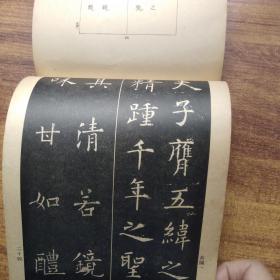 夫子膺五緯之
精踵千年之聖
其清若鏡
味甘如醴